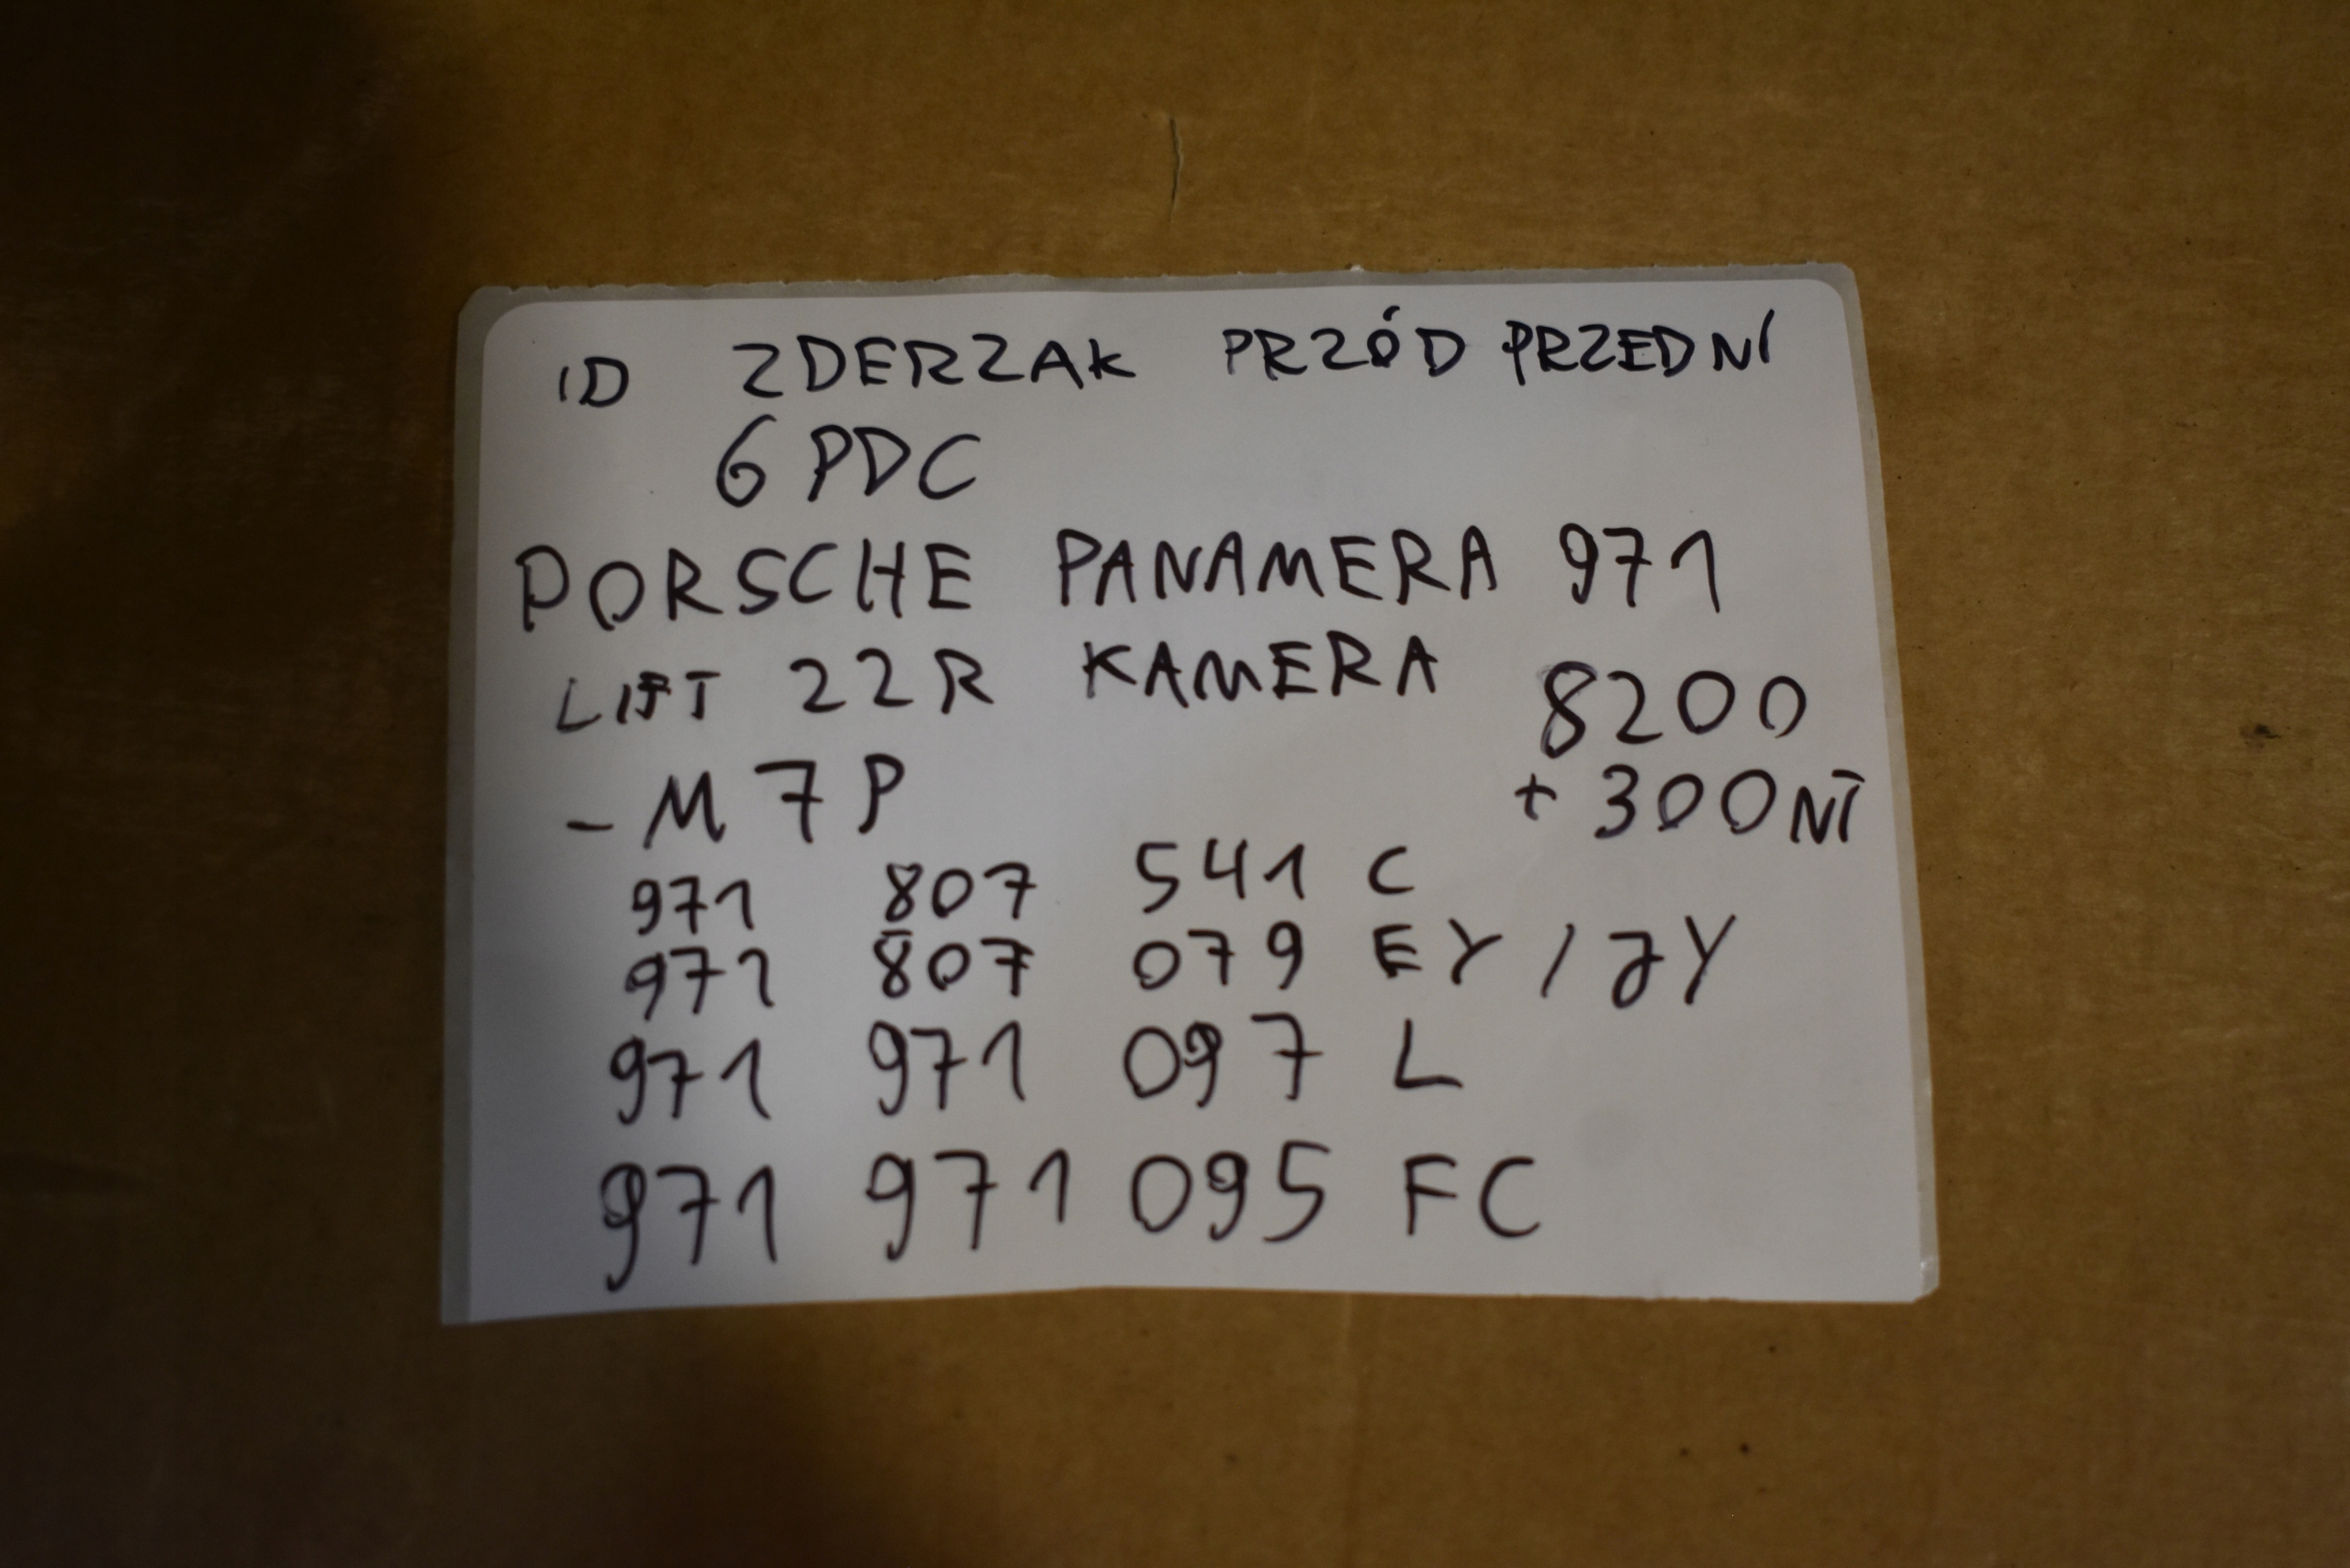 ID ZDERZAK PRZÓD PRZEDNI
6 PDC
PORSCHE PANAMERA 971
LIFT 22R KAMERA 8200
- M7P + 300 NT
971 807 541 C
971 807 079 EY / JY
971 971 097 L
971 971 095 FC